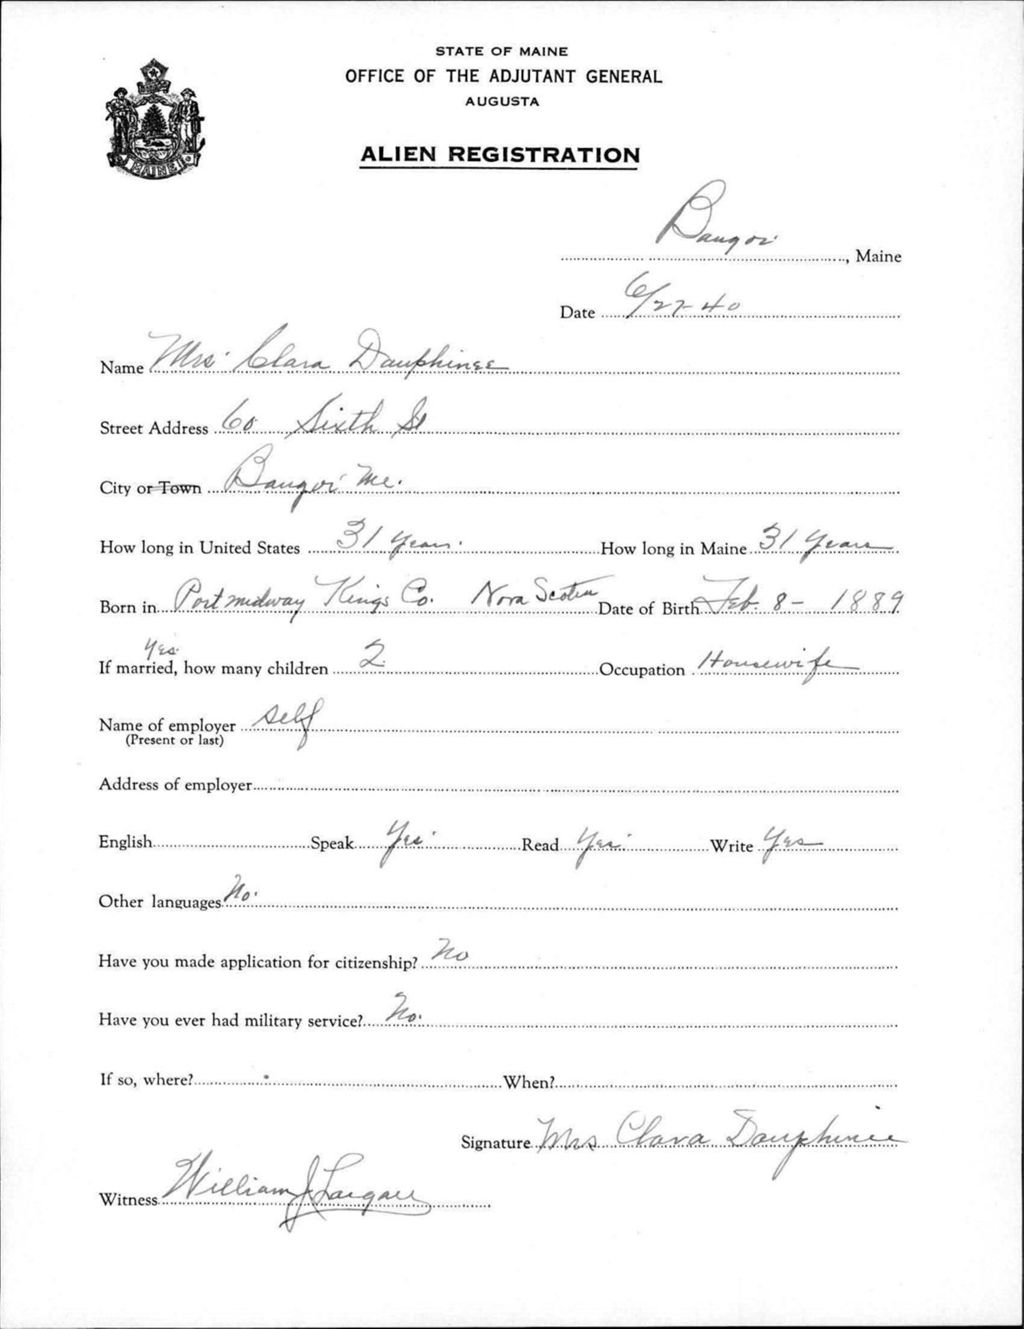 STATE OF MAINE
OFFICE OF THE ADJUTANT GENERAL
AUGUSTA
MAINE
ALIEN REGISTRATION
Bangor, Maine
Date 6/27-40
Name Mrs. Clara Dauphinee
Street Address 60 Sixth St
City or Town Bangor Me.
How long in United States 31 Years. How long in Maine 31 Years
Born in Port midway Kings Co. Nova Scotia Date of Birth Feb. 8- 1889
Yes
If married, how many children 2 Occupation Housewife
Name of employer self
(Present or last)
Address of employer
English Speak Yes Read Yes Write Yes
Other languages No.
Have you made application for citizenship? No
Have you ever had military service? No.
If so, where? When?
Signature Mrs Clara Dauphinee
Witness William J